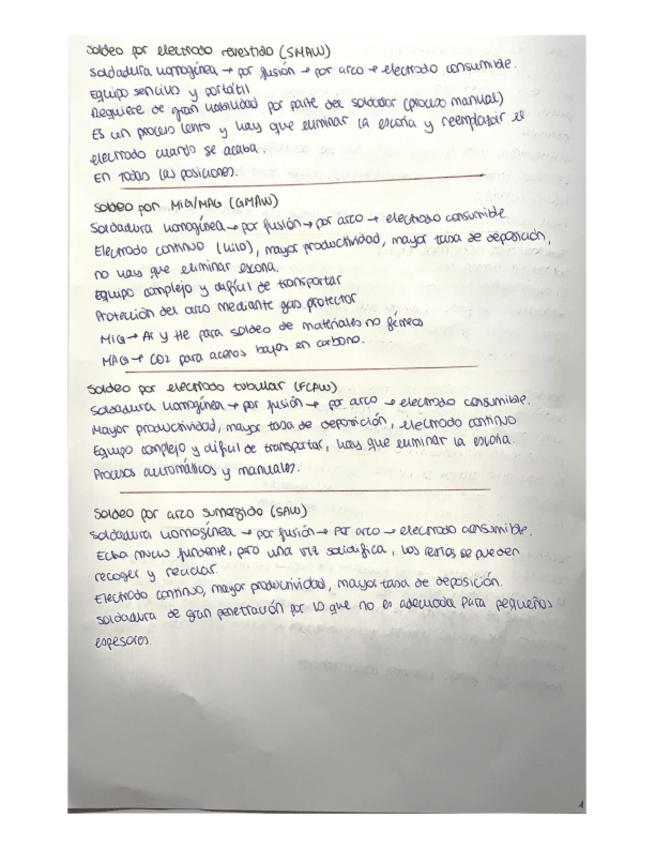 Soldeo por electrodo revestido (SMAW)
Soldadura homogénea → por fusión → por arco → electrodo consumible.
Equipo sencillo y portátil
Requiere de gran habilidad por parte del soldador (proceso manual)
Es un proceso lento y hay que eliminar la escoria y reemplazar el
electrodo cuando se acaba.
En todas las posiciones.
Soldeo por MIG/MAG (GMAW)
Soldadura homogínea → por fusión → por arco → electrodo consumible
Electrodo continuo (hilo), mayor productividad, mayor tasa de deposición,
no hay que eliminar escoria.
Equipo complejo y difícil de transportar
Protección del arco mediante gas protector
MIG → Ar y He para soldeo de materiales no férreos
MAG → CO2 para aceros bajos en carbono.
Soldeo por electrodo tubular (FCAW)
Soldadura homogínea → por fusión → por arco → electrodo consumible.
Mayor productividad, mayor tasa de deposición, electrodo continuo
Equipo complejo y difícil de transportar, hay que eliminar la escoria.
Procesos automáticos y manuales.
Soldeo por arco sumergido (SAW)
Soldadura homogínea → por fusión → por arco → electrodo consumible.
Echa mucho fundente, pero una vez solidifica, los restos se pueden
recoger y reciclar.
Electrodo continuo, mayor productividad, mayor tasa de deposición.
Soldadura de gran penetración por lo que no es adecuada para pequeños
espesores.
1